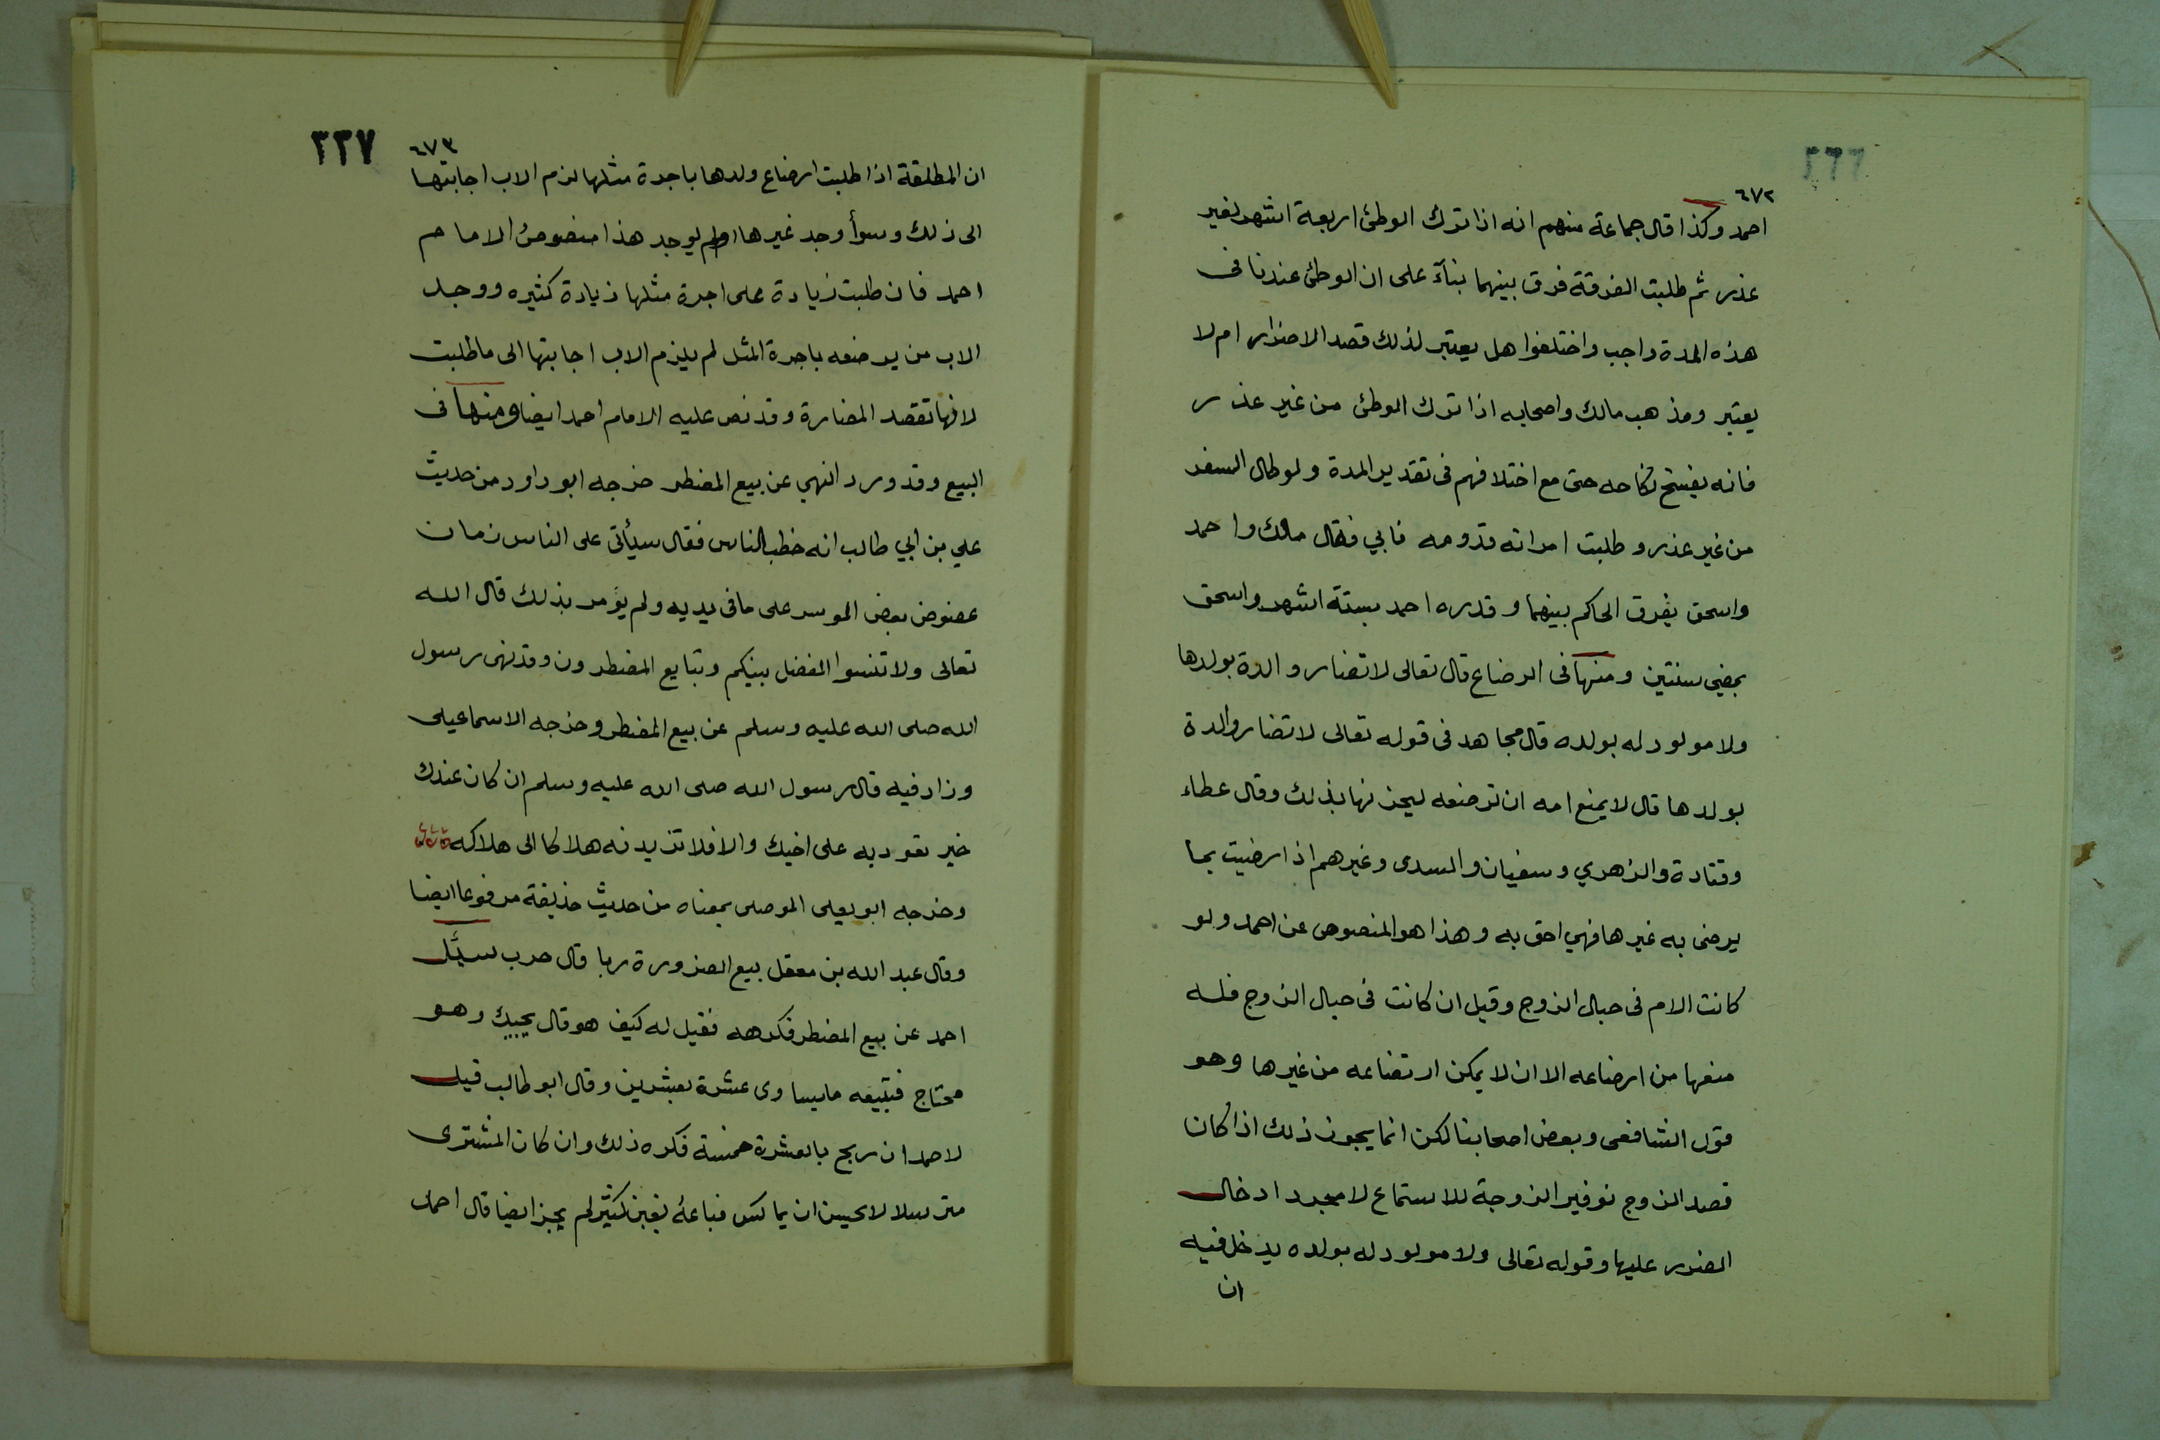 ٦٧٢
احمد وكذا قال جماعة منهم انه اذا ترك الوطئ اربعة اشهر لغير
عذر ثم طلبت الفرقة فرق بينهما بنآء على ان الوطئ عندنا فى
هذه المدة واجب واختلفوا هل يعتبر لذلك قصد الاضرار ام لا
يعتبر ومذهب مالك واصحابه اذا ترك الوطئ من غير عذر
فانه يفسخ نكاحه حتى مع اختلافهم فى تقدير المدة ولو طال السفر
من غير عذر وطلبت امراته قدومه فابي فقال مالك واحمد
واسحق يفرق الحاكم بينهما وقدره احمد بستة اشهر واسحق
بمضي سنتين ومنها فى الرضاع قال تعالى لا تضار والدة بولدها
ولا مولود له بولده قال مجاهد فى قوله تعالى لا تضار والدة
بولدها قال لا يمنع امه ان ترضعه ليحزنها بذلك وقال عطاء
وقتادة والزهري وسفيان والسدى وغيرهم اذا رضيت بما
يرضى به غيرها فهي احق به وهذا هو المنصوص عن احمد ولو
كانت الام فى حبال الزوج وقيل ان كانت فى حبال الزوج فله
منعها من ارضاعه الا ان لا يمكن ارتضاعه من غيرها وهو
قول الشافعى وبعض اصحابنا لكن انما يجوز ذلك اذا كان
قصد الزوج توفير الزوجة للاستماع لا مجرد ادخال
الضرر عليها وقوله تعالى ولا مولود له بولده يدخل فيه
ان
٢٢٧
٦٧٣
ان المطلقة اذا طلبت ارضاع ولدها باجرة مثلها لزم الاب اجابتها
الى ذلك وسوأ وجد غيرها او لم يوجد هذا منصوص الامام
احمد فان طلبت زيادة على اجرة مثلها زيادة كثيره ووجد
الاب من يرضعه باجرة المثل لم يلزم الاب اجابتها الى ما طلبت
لانها تقصد المضارة وقد نص عليه الامام احمد ايضا ومنها فى
البيع وقد ورد النهي عن بيع المضطر خرجه ابو داود من حديث
علي بن ابي طالب انه خطب الناس فقال سيأتى على الناس زمان
عضوض يعض الموسر على ما فى يديه ولم يؤمر بذلك قال الله
تعالى ولا تنسوا الفضل بينكم وتبايع المضطرون وقد نهى رسول
الله صلى الله عليه وسلم عن بيع المضطر وخرجه الاسماعيلى
وزاد فيه قال رسول الله صلى الله عليه وسلم ان كان عندك
خير تعود به على اخيك والا فلا تزيدنه هلاكا الى هلاكه
وخرجه ابو يعلى الموصلى بمعناه من حديث حذيفة مرفوعا ايضا
وقال عبد الله بن معقل بيع الضرورة ربا قال حرب سئل
احمد عن بيع المضطر فكرهه فقيل له كيف هو قال يجيبك وهو
محتاج فتبيعه ما يساوى عشرة بعشرين وقال ابو طالب قيل
لاحمد ان ربح بالعشرة خمسة فكره ذلك وان كان المشترى
مترسلا لا يحسن ان يماكس فباعه بغبن كثير لم يجز ايضا قال احمد